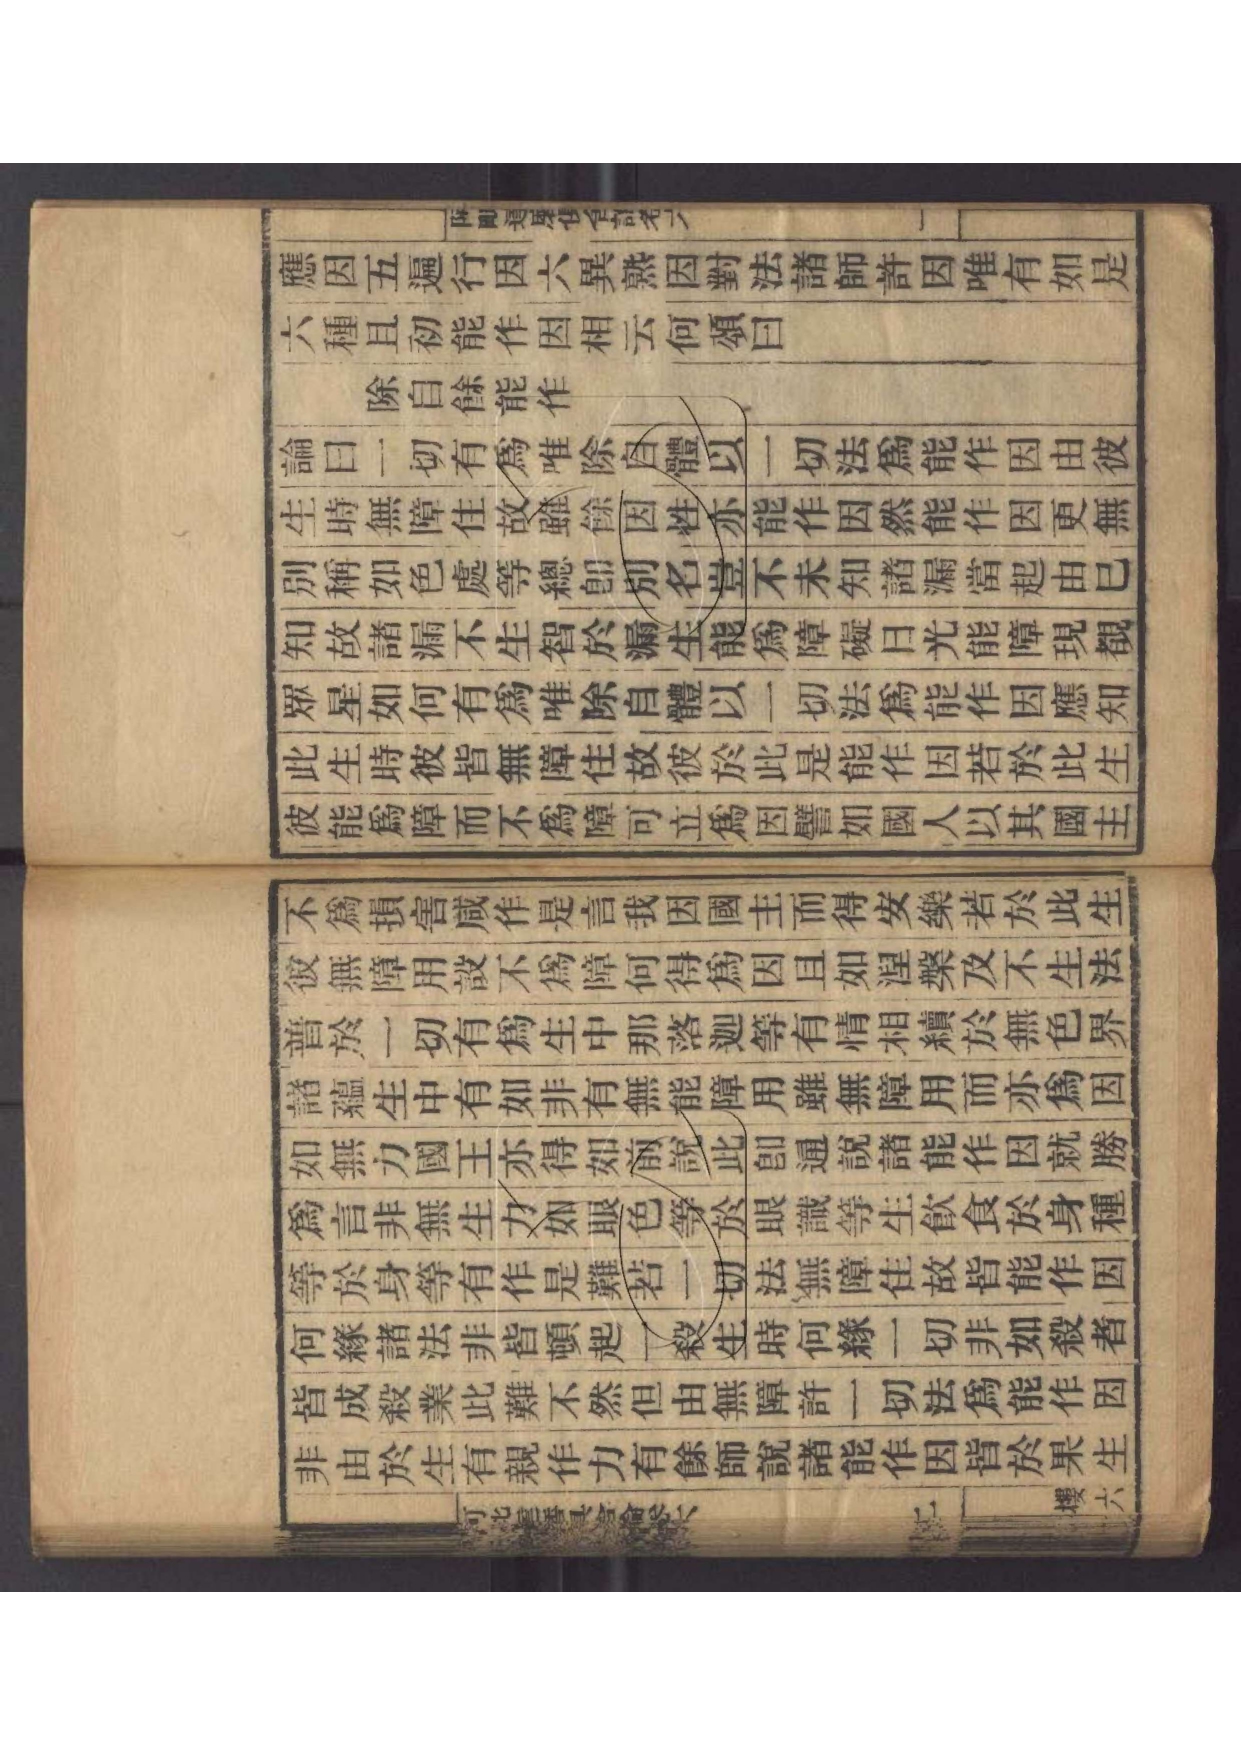 應因五遍行因六異熟因對法諸師許因唯有如是
六種且初能作因相云何頌曰
除自餘能作
論曰一切有為唯除自體以一切法為能作因由彼
生時無障住故雖餘因性亦能作因然能作因更無
別稱如色處等總即別名豈不未知諸漏當起由已
知故諸漏不生智於漏生能為障礙日光能障現覩
眾星如何有為唯除自體以一切法為能作因應知
此生時彼皆無障住故彼於此是能作因若於此生
彼能為障而不為障可立為因譬如國人以其國主
不為損害咸作是言我因國主而得安樂若於此生
彼無障用設不為障何得為因且如涅槃及不生法
普於一切有為生中那落迦等有情相續於無色界
諸蘊生中有如非有無能障用雖無障用而亦為因
如無力國王亦得如前說此即通說諸能作因就勝
為言非無生力如眼色等於眼識等生飲食於身種
等於身等有作是難若一切法無障住故皆能作因
何緣諸法非皆頓起一殺生時何緣一切非如殺者
皆成殺業此難不然但由無障許一切法為能作因
非由於生有親作力有餘師說諸能作因皆於果生
二
樓六